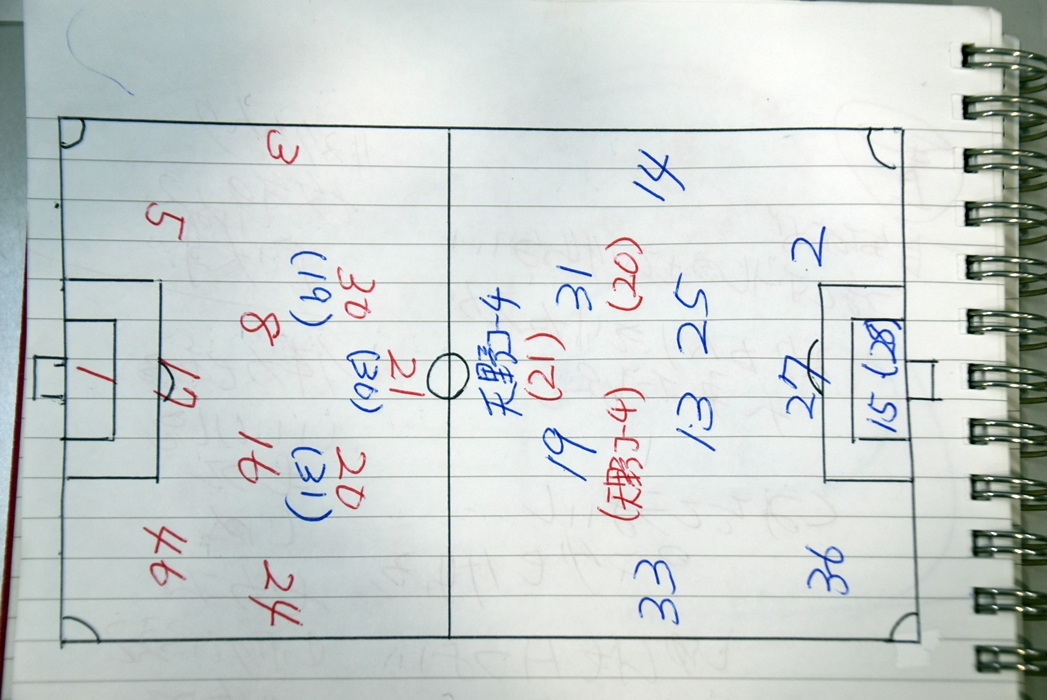 1
5
17
46
3
8
16
24
30
(19)
21
(30)
20
(31)
天野J-4
(21)
31
(20)
19
(天野J-4)
14
25
13
33
2
27
36
15 (28)